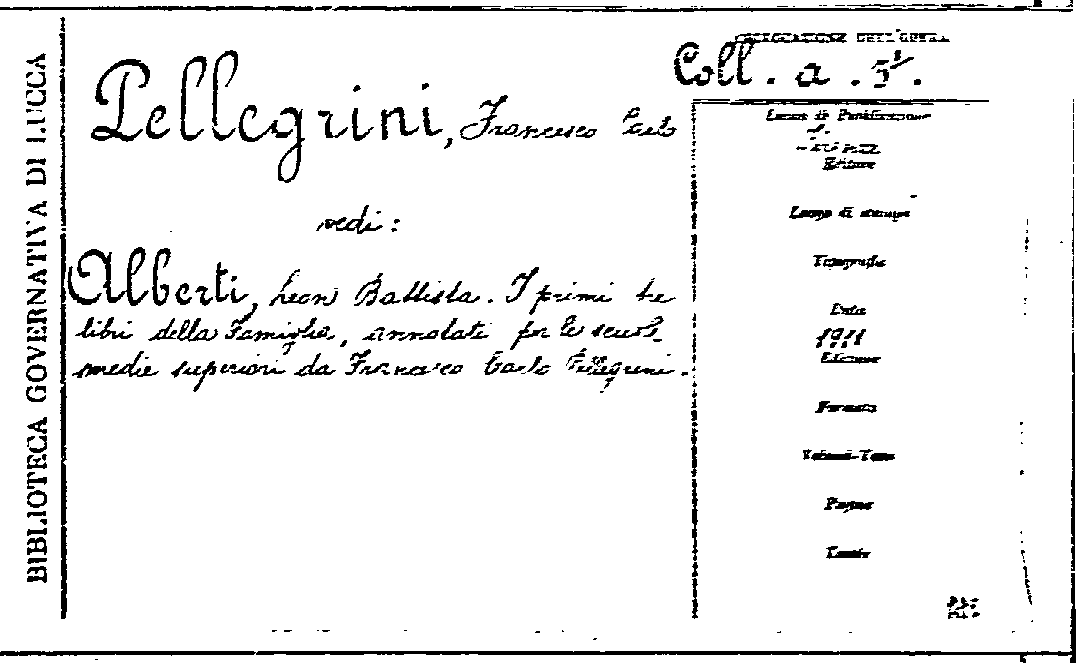 BIBLIOTECA GOVERNATIVA DI LUCCA
COLLOCAZIONE DELL'OPERA
Coll. a. 5.
Pellegrini, Francesco Carlo
vedi:
Alberti, Leon Battista. I primi tre
libri della Famiglia, annotati per le scuole
medie superiori da Francesco Carlo Pellegrini.
Luogo di Pubblicazione
Firenze
Editore
Luogo di stampa
Tipografia
Data
1911
Edizione
Formato
Volumi-Tomo
Pagine